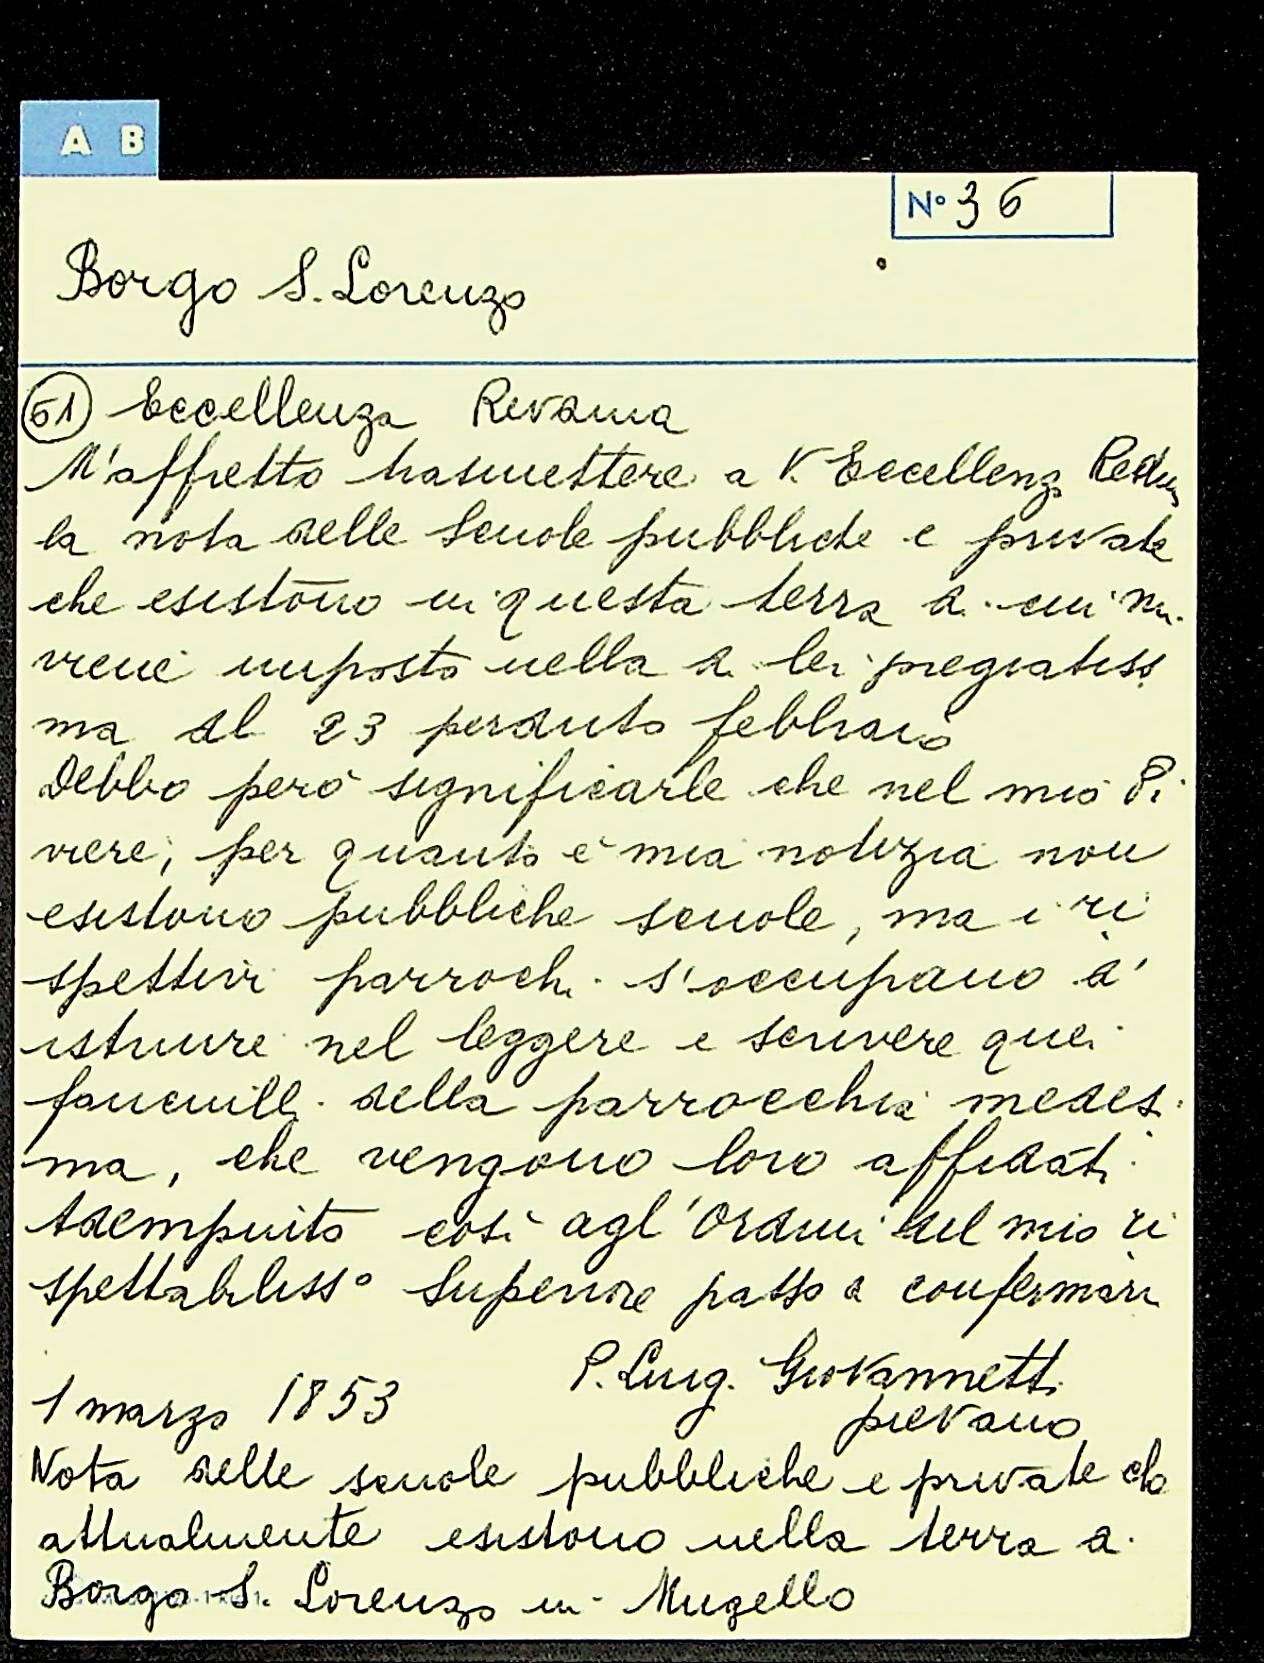 A B
N° 36
Borgo S. Lorenzo
51 Eccellenza Revdma
M'affretto trasmettere a V. Eccellenz
la nota delle Scuole pubbliche e private
che esistono in questa terra di cui mi
viene imposto nella di lei pregiatiss
ma del 23 perduto febbraio
Debbo però significarle che nel mio Pi
viere, per quanto è mia notizia non
esistono pubbliche scuole, ma i ri
spettivi parrochi s'occupano d'
istruire nel leggere e scrivere quei
fanciulli della parrocchia medesi
ma, che vengono loro affidati
Adempiuto così agl'Ordini del mio ri
spettabiliss° Superiore passo a confermarmi
P. Luigi Giovannetti
pievano
1 marzo 1853
Nota delle scuole pubbliche e private che
attualmente esistono nella terra di
Borgo S. Lorenzo in Mugello